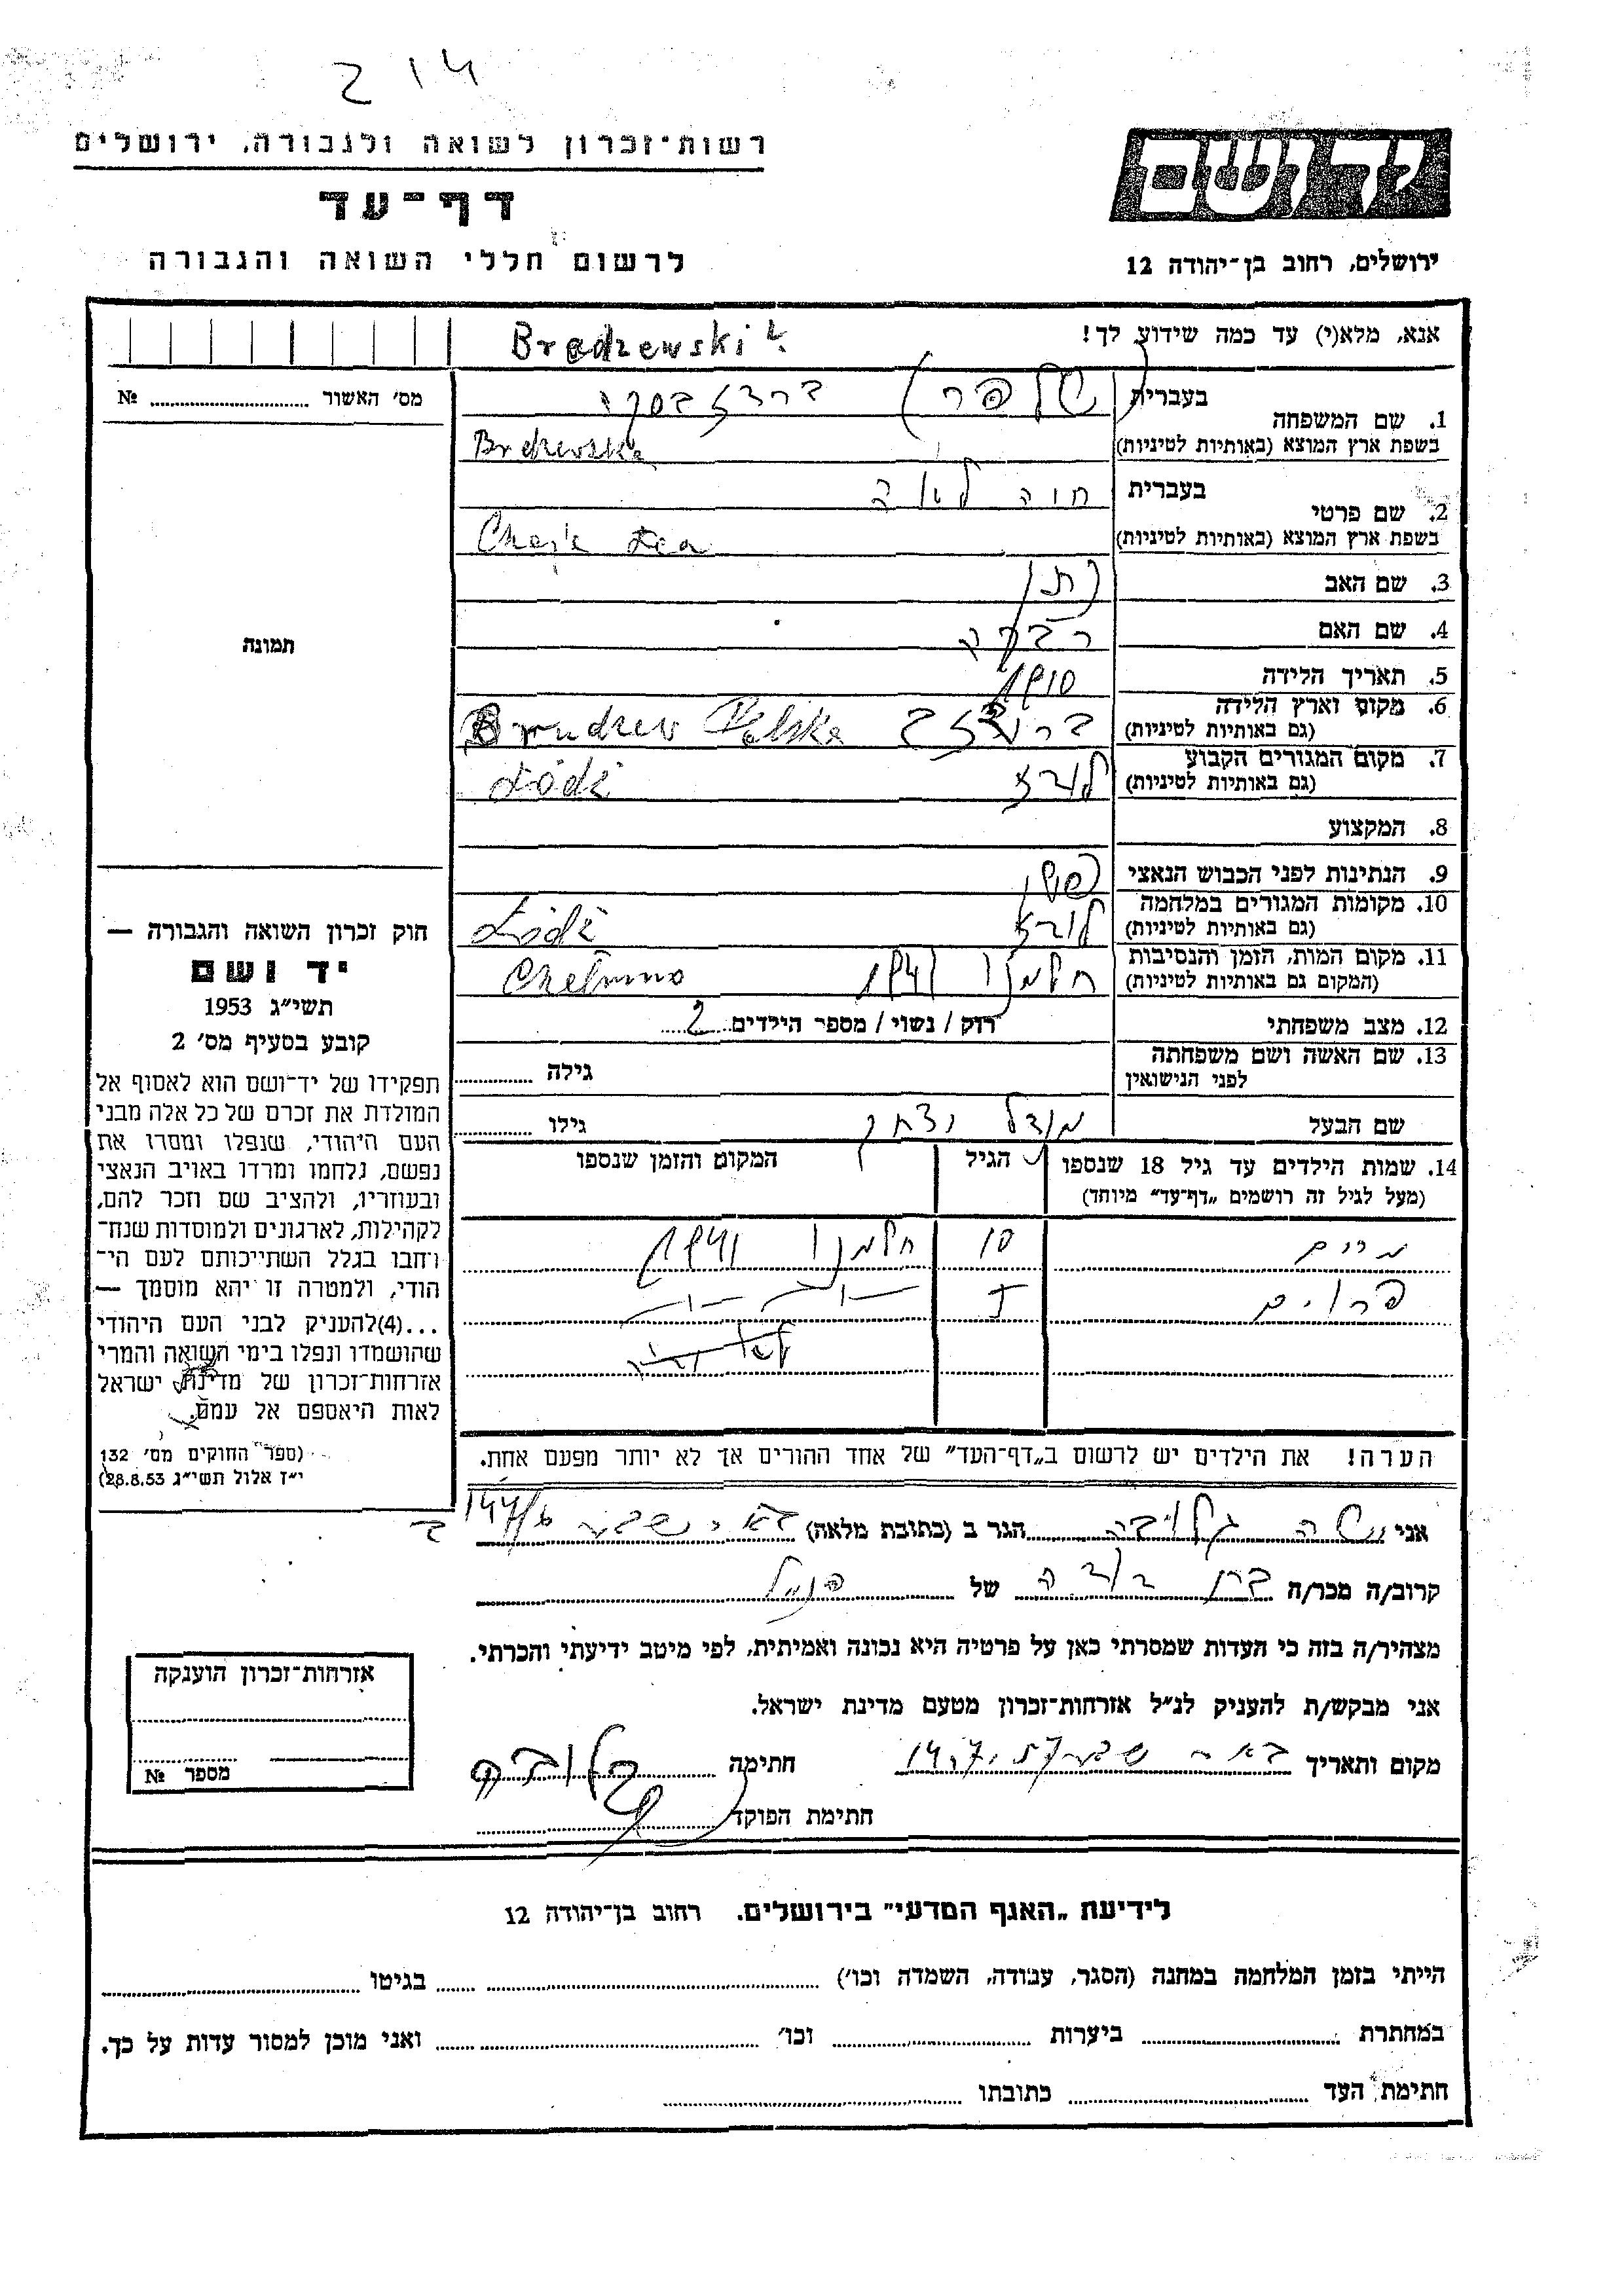 214
רשות־זכרון לשואה ולגבורה, ירושלים
דף־עד
לרשום חללי השואה והגבורה
ידושם
ירושלים, רחוב בן־יהודה 12
אנא, מלא(י) עד כמה שידוע לך!
Bradzewski ?
מס׳ האשור ........ №
1. שם המשפחה
בעברית
(שלפר) ברדזבסקי
בשפת ארץ המוצא (באותיות לטיניות)
Brdzewska
2. שם פרטי
בעברית
חיה לאה
בשפת ארץ המוצא (באותיות לטיניות)
Chaja Łea
תמונה
3. שם האב
נתן
4. שם האם
רבקה
5. תאריך הלידה
1910
6. מקום וארץ הלידה
(גם באותיות לטיניות)
Brudzew Polska
7. מקום המגורים הקבוע
(גם באותיות לטיניות)
לודז Łódź
8. המקצוע
9. הנתינות לפני הכבוש הנאצי
פולני
10. מקומות המגורים במלחמה
(גם באותיות לטיניות)
לודז Łódź
11. מקום המות, הזמן והנסיבות
(המקום גם באותיות לטיניות)
חלמנו 1941 Chełmno
12. מצב משפחתי
רוק / נשוי / מספר הילדים 2
13. שם האשה ושם משפחתה
לפני הנישואין
גילה
שם הבעל
יצחק
גילו
14. שמות הילדים עד גיל 18 שנספו
(מעל לגיל זה רושמים „דף־עד״ מיוחד)
הגיל
המקום והזמן שנספו
מרים 10 חלמנו 1941
פרוים 5 —״— —״—
הערה! את הילדים יש לרשום ב„דף־העד״ של אחד ההורים אך לא יותר מפעם אחת.
חוק זכרון השואה והגבורה —
יד ושם
תשי״ג 1953
קובע בסעיף מס׳ 2
תפקידו של יד־ושם הוא לאסוף אל
המולדת את זכרם של כל אלה מבני
העם היהודי, שנפלו ומסרו את
נפשם, נלחמו ומרדו באויב הנאצי
ובעוזריו, ולהציב שם וזכר להם,
לקהילות, לארגונים ולמוסדות שנח־
רבו בגלל השתייכותם לעם הי־
הודי, ולמטרה זו יהא מוסמך —
...(4)להעניק לבני העם היהודי
שהושמדו ונפלו בימי השואה והמרי
אזרחות־זכרון של מדינת ישראל
לאות היאספם אל עמם.
(ספר החוקים מס׳ 132
י״ז אלול תשי״ג 28.8.53)
אני הגר ב (כתובת מלאה) באר שבע
קרוב/ה מכר/ה בן דודה של הנ״ל
מצהיר/ה בזה כי העדות שמסרתי כאן על פרטיה היא נכונה ואמיתית, לפי מיטב ידיעתי והכרתי.
אני מבקש/ת להעניק לנ״ל אזרחות־זכרון מטעם מדינת ישראל.
מקום ותאריך באר שבע חתימה
חתימת הפוקד
אזרחות־זכרון הוענקה
מספר №
לידיעת „האגף המדעי״ בירושלים. רחוב בן־יהודה 12
הייתי בזמן המלחמה במחנה (הסגר, עבודה, השמדה וכו׳) ........ בגיטו ........
במחתרת ........ ביערות ........ וכו׳ ........ ואני מוכן למסור עדות על כך.
חתימת העד ........ כתובתו ........